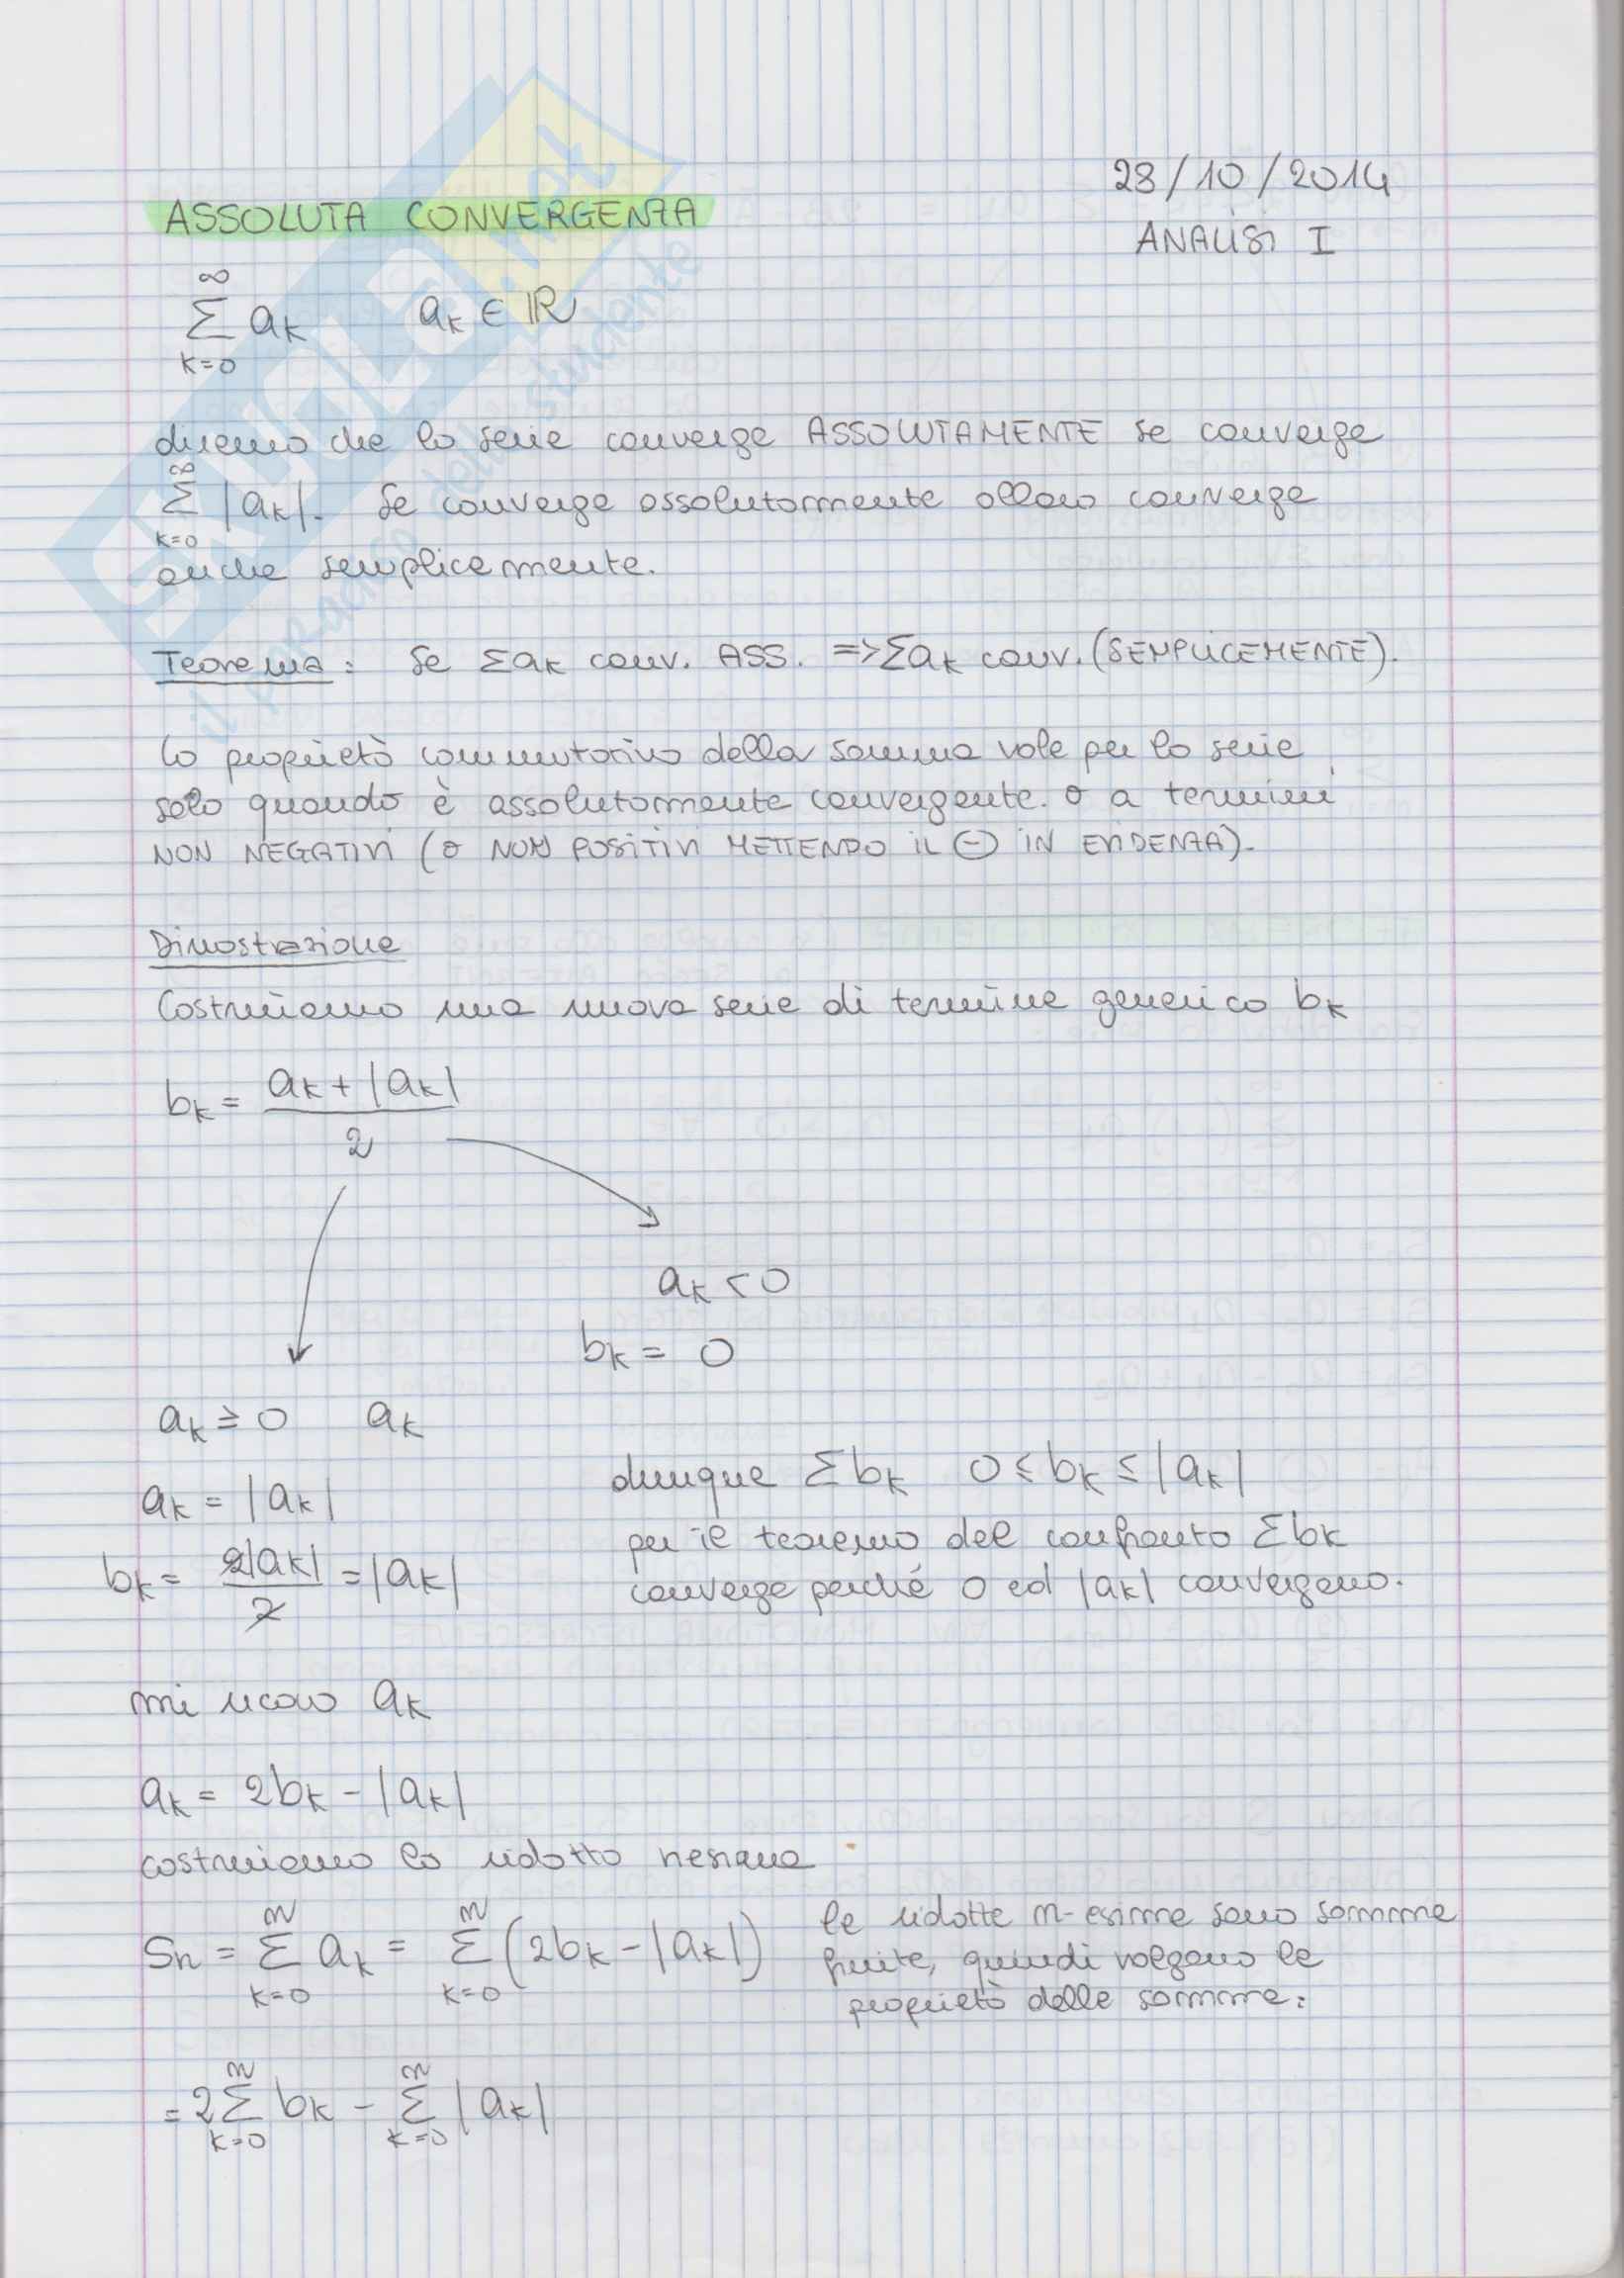 28/10/2014
ANALISI I
ASSOLUTA CONVERGENZA
∞
Σ aₖ aₖ ∈ ℝ
k=0
diremo che la serie converge ASSOLUTAMENTE se converge
∞
Σ |aₖ|. Se converge assolutamente allora converge
k=0
anche semplicemente.
Teorema: Se Σaₖ conv. ASS. => Σaₖ conv. (SEMPLICEMENTE).
la proprietà commutativa della somma vale per la serie
solo quando è assolutamente convergente. o a termini
NON NEGATIVI (o NON POSITIVI METTENDO IL ⊖ IN EVIDENZA).
Dimostrazione
Costruiamo una nuova serie di termine generico bₖ
bₖ = aₖ + |aₖ|
2
aₖ < 0
bₖ = 0
aₖ ≥ 0 aₖ
aₖ = |aₖ|
bₖ = 2|aₖ| = |aₖ|
2
dunque Σbₖ 0 ≤ bₖ ≤ |aₖ|
per il teorema del confronto Σbₖ
converge perché 0 ed |aₖ| convergono.
mi ricavo aₖ
aₖ = 2bₖ - |aₖ|
costruiamo la ridotta nesima
n n
Sn = Σ aₖ = Σ (2bₖ - |aₖ|)
k=0 k=0
le ridotte n-esime sono somme
finite, quindi valgono le
proprietà delle somme:
n n
= 2Σ bₖ - Σ |aₖ|
k=0 k=0
SKUOLA.not
il paradiso dello studente